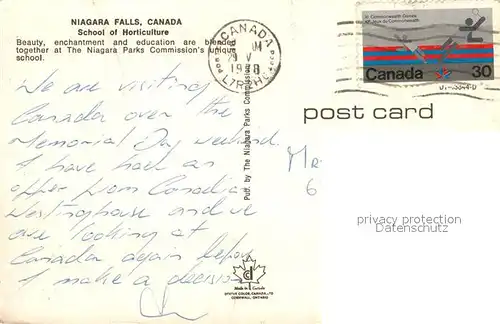 NIAGARA FALLS, CANADA
School of Horticulture
Beauty, enchantment and education are blended
together at The Niagara Parks Commission's unique
school.
CANADA
PM
29 V
1978
XI Commonwealth Games
XIes Jeux du Commonwealth
Canada 30
post card
We are visiting
Canada over the
Memorial Day weekend.
I have had an
offer from Canadian
Westinghouse and we
are looking at
Canada again before
I make a decision
Pub. by The Niagara Parks Commission
Mr
6
privacy protection
Datenschutz
Made in Canada
CORNWALL, ONTARIO